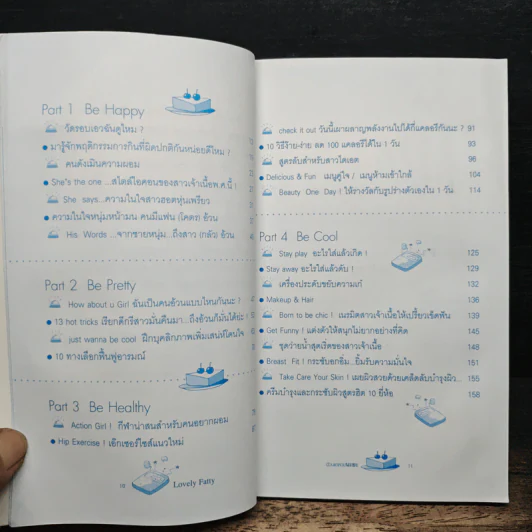 Part 1 Be Happy
วัดรอบเอวฉันดูไหม ?
• มารู้จักพฤติกรรมการกินที่ผิดปกติกันหน่อยดีไหม ?
คนดังเมินความผอม
• She's the one ...สไตล์ไอคอนของสาวเจ้าเนื้อพ.ศ.นี้ !
She says...ความในใจสาวฮอตหุ่นเพรียว
• ความในใจหนุ่มหน้ามน คนมีแฟน (โคตร) อ้วน
His Words ...จากชายหนุ่ม...ถึงสาว (กลัว) อ้วน
Part 2 Be Pretty
How about u Girl ฉันเป็นคนอ้วนแบบไหนกันนะ !
• 13 hot tricks เรียกดีกรีสาวมั่นคืนมา...ถึงอ้วนก็มันได้ย่ะ !
just wanna be cool ฝึกบุคลิกภาพเพิ่มเสน่ห์โดนใจ
• 10 ทางเลือกฟื้นฟูอารมณ์
Part 3 Be Healthy
Action Girl ! กีฬาน่าสนสำหรับคนอยากผอม
• Hip Exercise ! เอ็กเซอร์ไซส์แนวใหม่
10 Lovely Fatty
check it out วันนี้เผาผลาญพลังงานไปได้กี่แคลอรีกันนะ ? 91
• 10 วิธีง๊าย-ง่าย ลด 100 แคลอรีได้ใน 1 วัน 93
สูตรลับสำหรับสาวไดเอต 96
• Delicious & Fun เมนูคู่ใจ / เมนูห้ามเข้าใกล้ 104
Beauty One Day ! ให้รางวัลกับรูปร่างตัวเองใน 1 วัน 114
Part 4 Be Cool
Stay play อะไรใส่แล้วเกิด ! 125
• Stay away อะไรใส่แล้วดับ ! 129
เครื่องประดับขยับความเก๋ 132
• Makeup & Hair 136
Born to be chic ! เนรมิตสาวเจ้าเนื้อให้เปรี้ยวเข็ดฟัน 139
• Get Funny ! แต่งตัวให้สนุกไม่ยากอย่างที่คิด 145
ชุดว่ายน้ำสุดเริ่ดของสาวเจ้าเนื้อ 148
• Breast Fit ! กระชับอกอึ๋ม...ยิ้มรับความมั่นใจ 151
Take Care Your Skin ! เผยผิวสวยด้วยเคล็ดลับบำรุงผิว... 155
• ครีมบำรุงและกระชับผิวสูตรฮิต 10 ยี่ห้อ 158
11